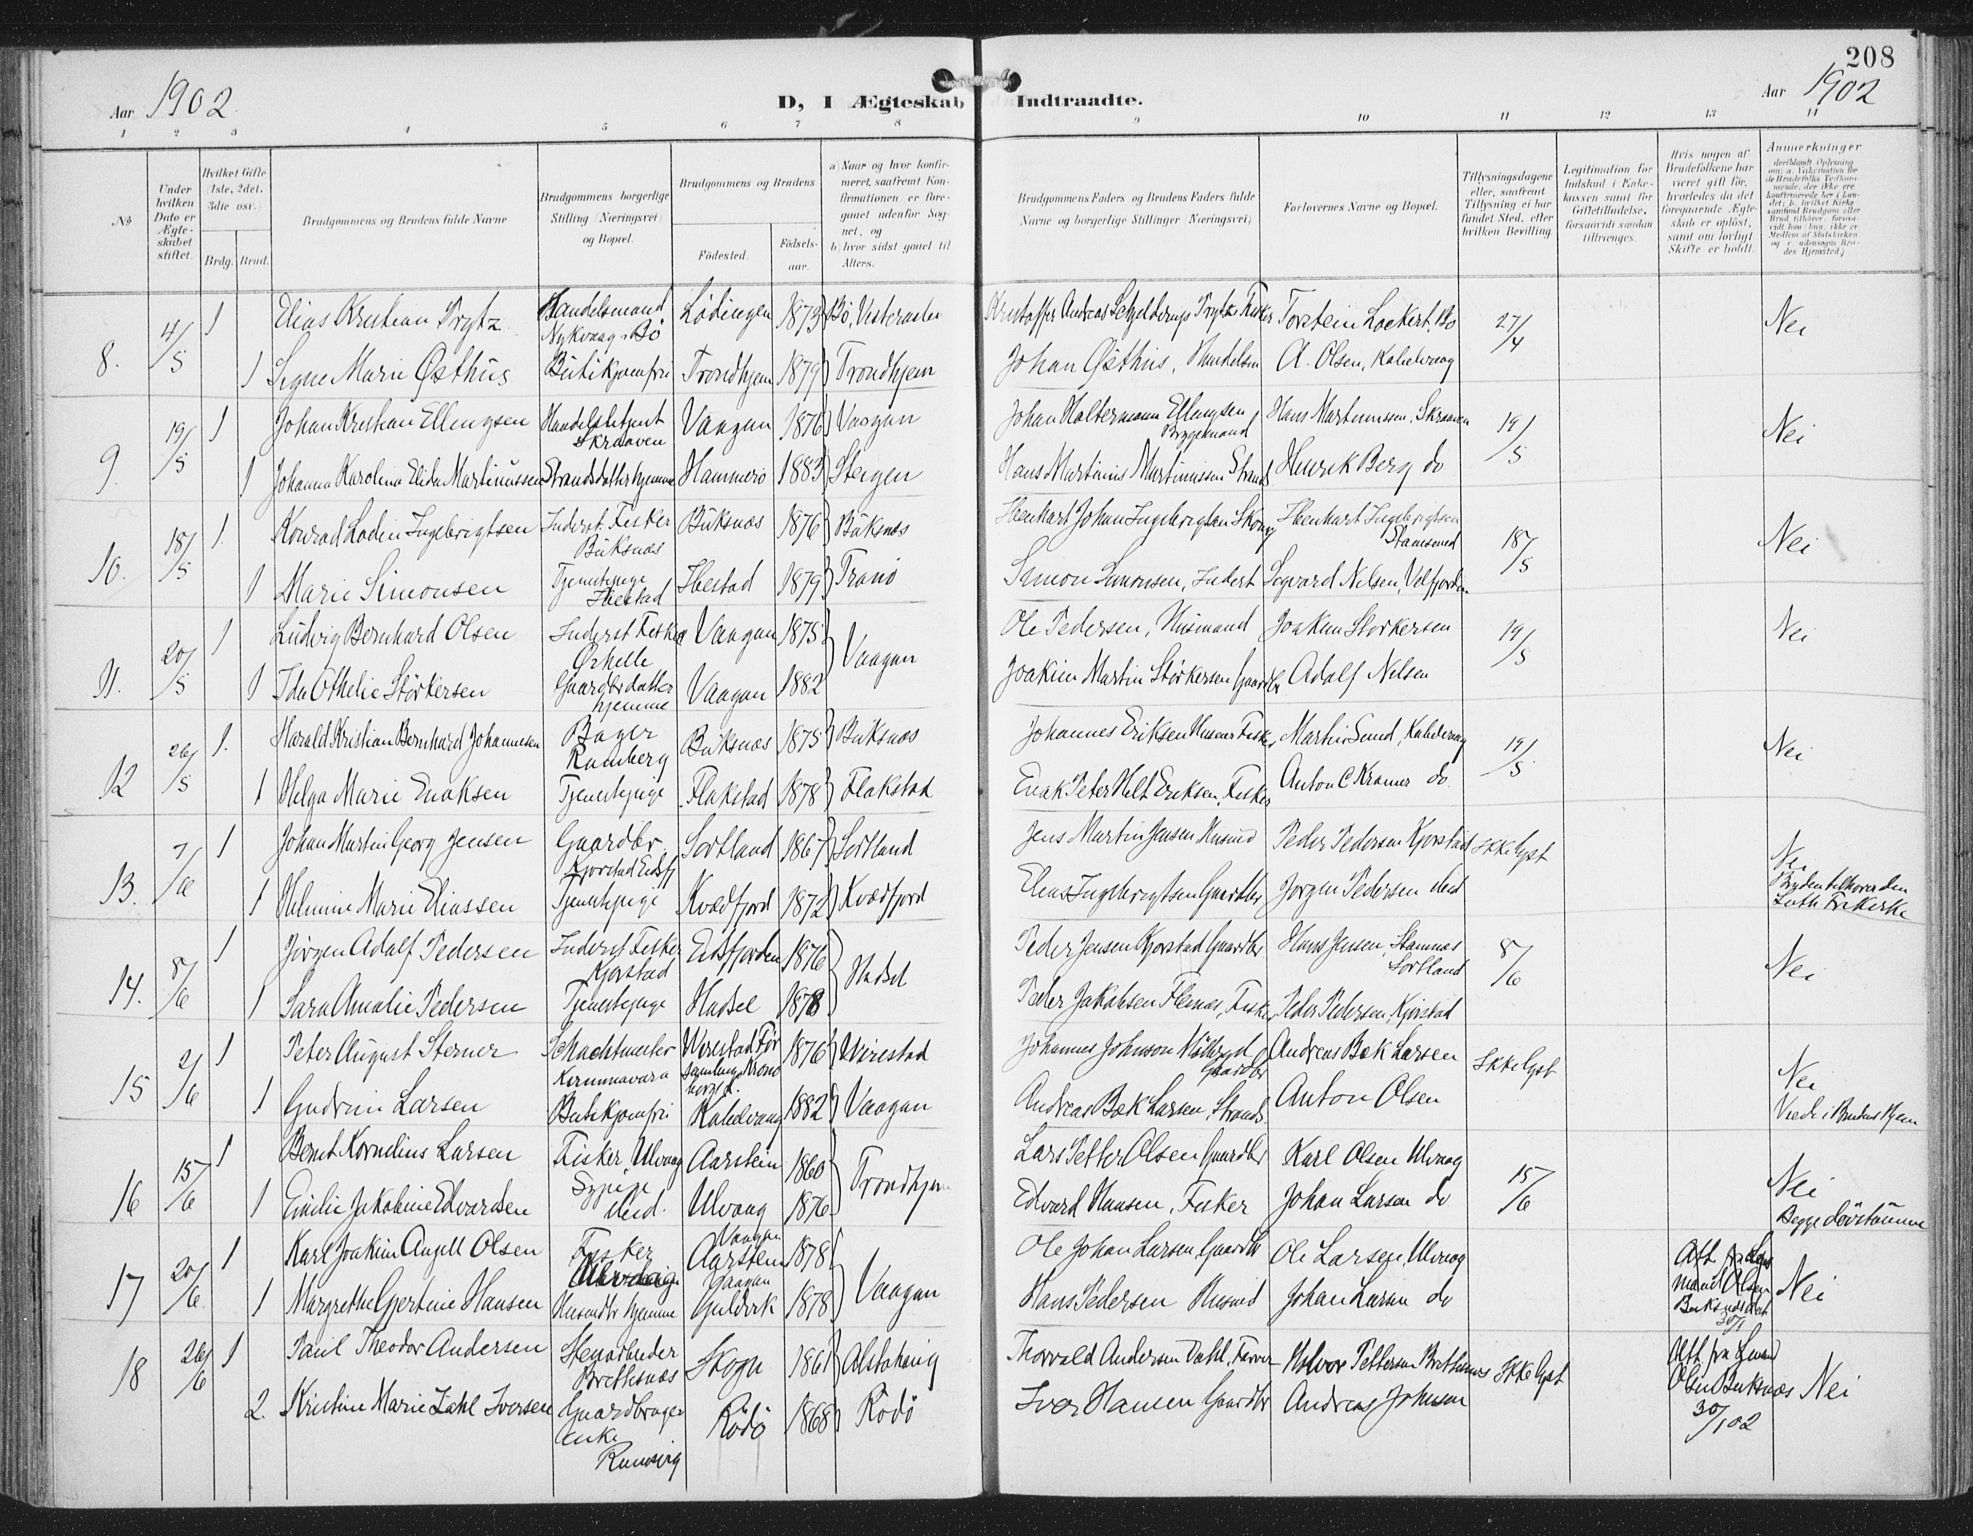 208
Aar 1902
D, I Ægteskab Indtraadte.
Aar 1902
1 2 3 4 5 6 7 8 9 10 11 12 13 14
No
Under hvilken Dato er Ægteskabet stiftet.
Hvilket Gifte 1ste, 2det, 3die osv.
Brdg. Brud.
Brudgommens og Brudens fulde Navne
Brudgommens borgerlige Stilling (Næringsvei) og Bopæl.
Brudgommens og Brudens
Fødested.
Fødselsaar.
a. Naar og hvor konfirmeret, saafremt Konfirmationen er foregaaet udenfor Sognet, og
b. hvor sidst gaaet til Alters.
Brudgommens Faders og Brudens Faders fulde Navne og borgerlige Stillinger (Næringsvei)
Forlovernes Navne og Bopæl.
Tillysningsdagene eller, saafremt Tillysning ei har fundet Sted, efter hvilken Bevilling.
Legitimation for Indskud i Enkekassen samt for Giftetilladelse, forsaavidt saadan tiltrænges.
Hvis nogen af Brudefolkene har været gift før, hvorledes da det foregaaende Ægteskab er opløst, samt om lovligt Skifte er holdt.
Anmerkninger
8. 4/5 1 Elias Kristian Prytz Handelsmand Nykvaag, Bø Lødingen 1873 Bø, Vesteraalen Kristoffer Andreas Schjelderup Prytz Fisker Torstein Lockert, Bø 27/4 Nei
1 Signe Marie Østhus Butikjomfru Trondhjem 1879 Trondhjem Johan Østhus, Handelsm A. Olsen, Kabelvaag
9. 19/5 1 Johan Kristian Ellingsen Handelsbetjent Skraaven Vaagan 1876 Vaagan Johan Haltermann Ellingsen Bryggemand Hans Martinussen, Skraaven 19/5 Nei
1 Johanna Karolina Elida Martinussen Strandsdatter hjemme Hammerø 1883 Steigen Hans Martinus Martinussen Strands Henrik Berg do
10. 18/5 1. Konrad Lodin Ingebrigtsen Inderst. Fisker Buksnæs Buksnæs 1876 Buksnæs Ebenhart Johan Ingebrigtsen Skomg Ebenhart Ingebrigtsen Stamsund 18/5 Nei
1 Marie Simonsen Tjenestepige Ibestad Ibestad 1879 Tranø Simon Simonsen, Inderst Segvard Nilsen, Velfjorden
11. 20/5 1 Ludvig Bernhard Olsen Inderst Fisker Ørhelle Vaagan 1875 Vaagan Ole Pedersen, Husmand Joakim Storkersen 19/5 Nei
1 Ida Othelie Störkersen Gaardbr datter hjemme Vaagan 1882 Joakim Martin Störkersen Gaardbr Adolf Nilsen
12 26/5 1. Harald Kristian Bernhard Johannesen Bager Ramberg Buksnæs 1875 Buksnæs Johannes Eriksen Husm Fisker Martin Sund, Kabelvaag 19/5 Nei
1 Helga Marie Enoksen Tjenestepige Flakstad 1878 Flakstad Enok Peter Helt Eriksen, Fisker Anton C Kramer do
13. 7/6 1 Johan Martin Georg Jensen Gaardbr. Kjorstad Eidsfj Sortland 1867 Sortland Jens Martin Jensen Husmd Peder Pedersen Kjorstad Ikke lyst Nei
1 Helmine Marie Eliassen Tjenestepige Kvædfjord 1872 Kvædfjord Elias Ingebrigtsen Gaardbr Jorgen Pedersen sted Bruden tilhører den Luth Frikirke
14. 8/6 1 Jörgen Adolf Pedersen Inderst Fisker Kjorstad Eidsfjorden 1876 Hadsel Peder Jensen Kjorstad Gaardbr Hans Jensen, Stamnæs Sortland 8/6 Nei
1 Sara Amalie Pedersen Tjenestepige Hadsel 1878 Peder Jakobsen Flesnæs, Fisker Peder Pedersen, Kjorstad
15 2/6 1 Peter August Sterner Schachtmester Kirunavara Wirestad Församling Kronoborgs L. 1876 Wirestad Johannes Johnson Gaardbr Andreas Bæk Larsen Ikke lyst Nei
1 Gudrun Larsen Butikjomfru Kabelvaag 1882 Vaagan Andreas Bæk Larsen, Strands. Anton Olsen Viede i Brudens Hjem
16 15/6 1 Bernt Kornelius Larsen Fisker, Ulvaag Aarstein 1860 Trondhjem Lars Petter Olsen Gaardbr Karl Olsen Ulvaag 15/6 Nei
1 Emilie Jakobine Edvardsen Sypige sted. Ulvaag 1876 Edvard Hansen, Fisker Johan Larsen do Begge døvstumme
17 20/6 1 Karl Joakim Angell Olsen Fisker Vaagan Aarstein 1878 Vaagan Ole Johan Larsen, Gaardb Ole Larsen, Ulvaag Att fra Lensmand Olsen Buksnæs Nei
1 Margrethe Gjertine Hansen Husmdbr hjemme Vaagan Gulvik 1878 Hans Pedersen Husmd Johan Larsen do
18 26/6 1 Paul Theodor Andersen Stenarbeider Brettesnæs Skogn 1861 Alstahaug Thorvald Andersen Dahl, Farver Halvor Pettersen Brettesnæs Ikke lyst Att fra Lmand Olsen Buksnæs 30/ 02 Nei
2. Kristine Marie Zahl Iversen Gaardbruger enke Rødø 1868 Rødø Iver Hansen Gaardbr Andreas Johnsen